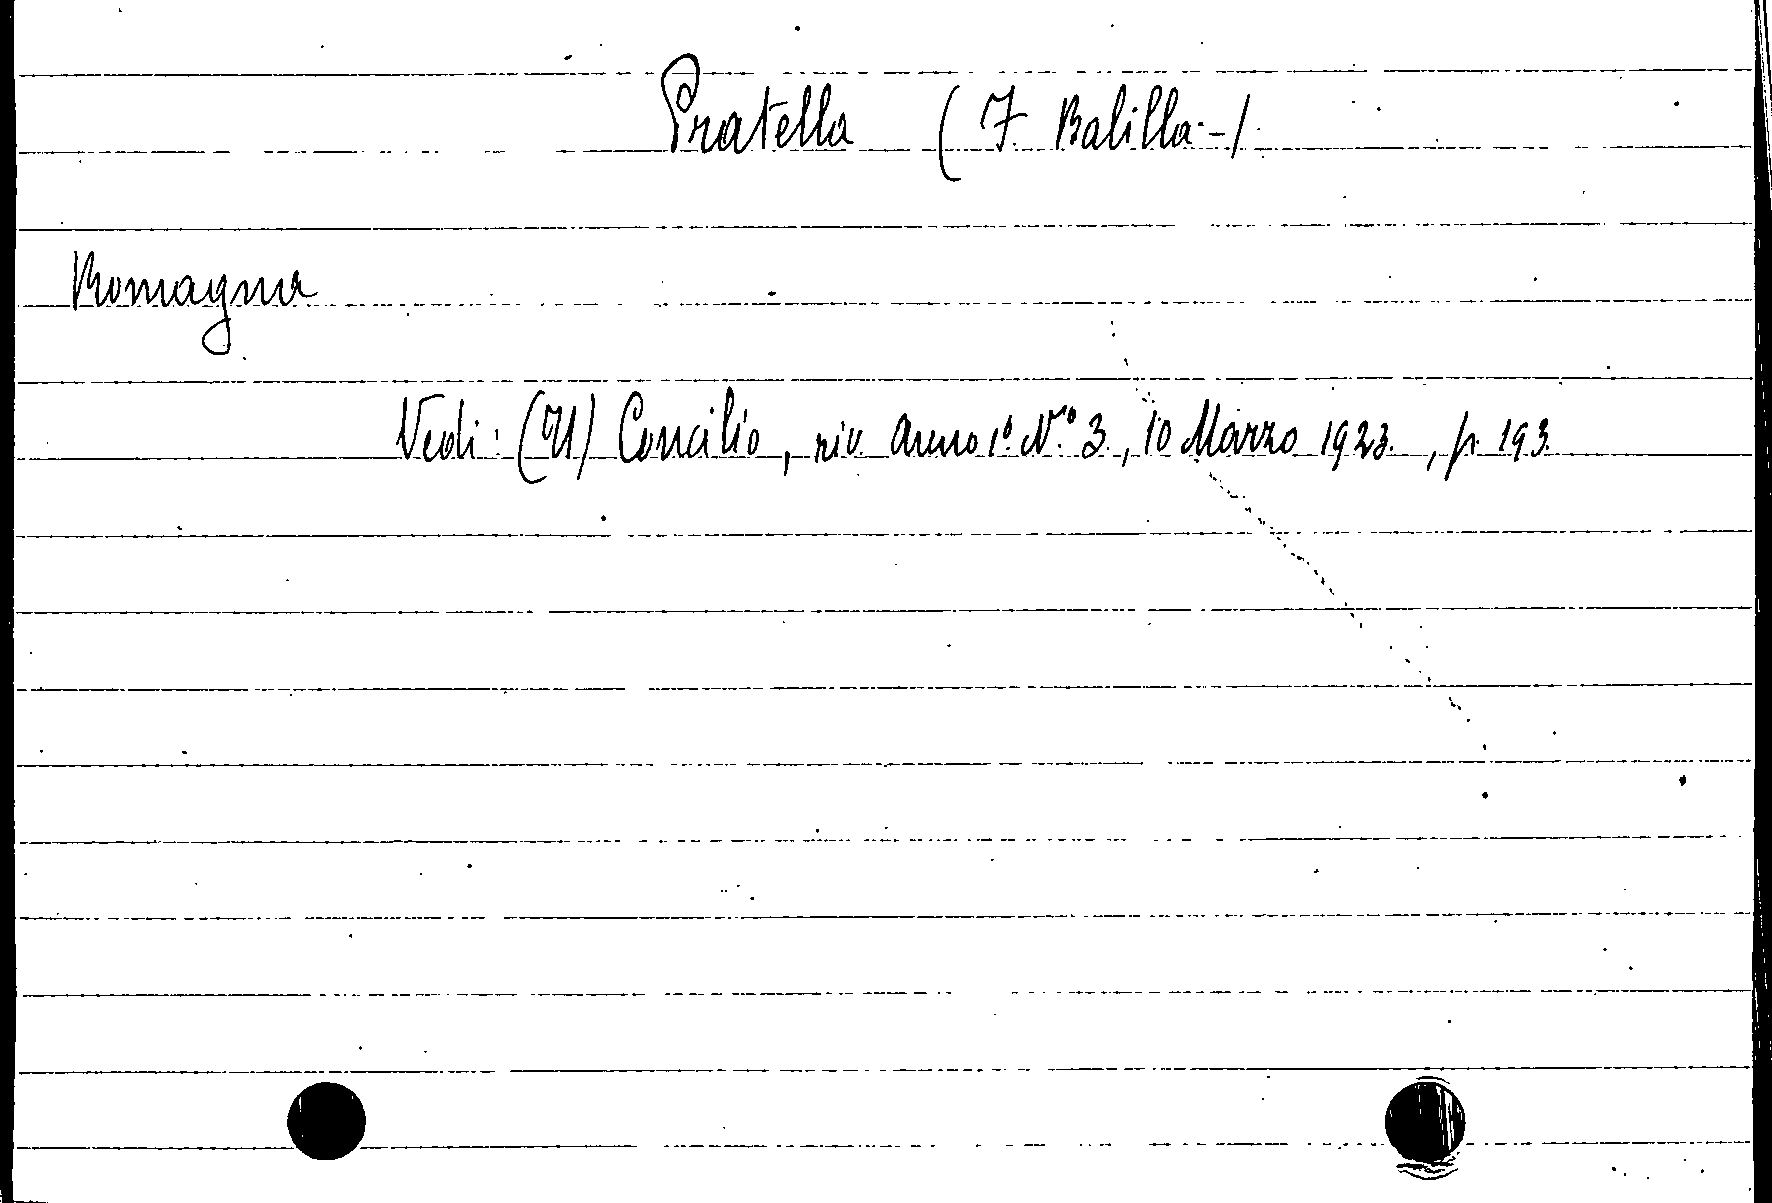 Pratella (F. Balilla -)
Romagna
Vedi: (Il) Concilio, riv. Anno 1º. N.º 3., 10 Marzo 1923., p. 193.